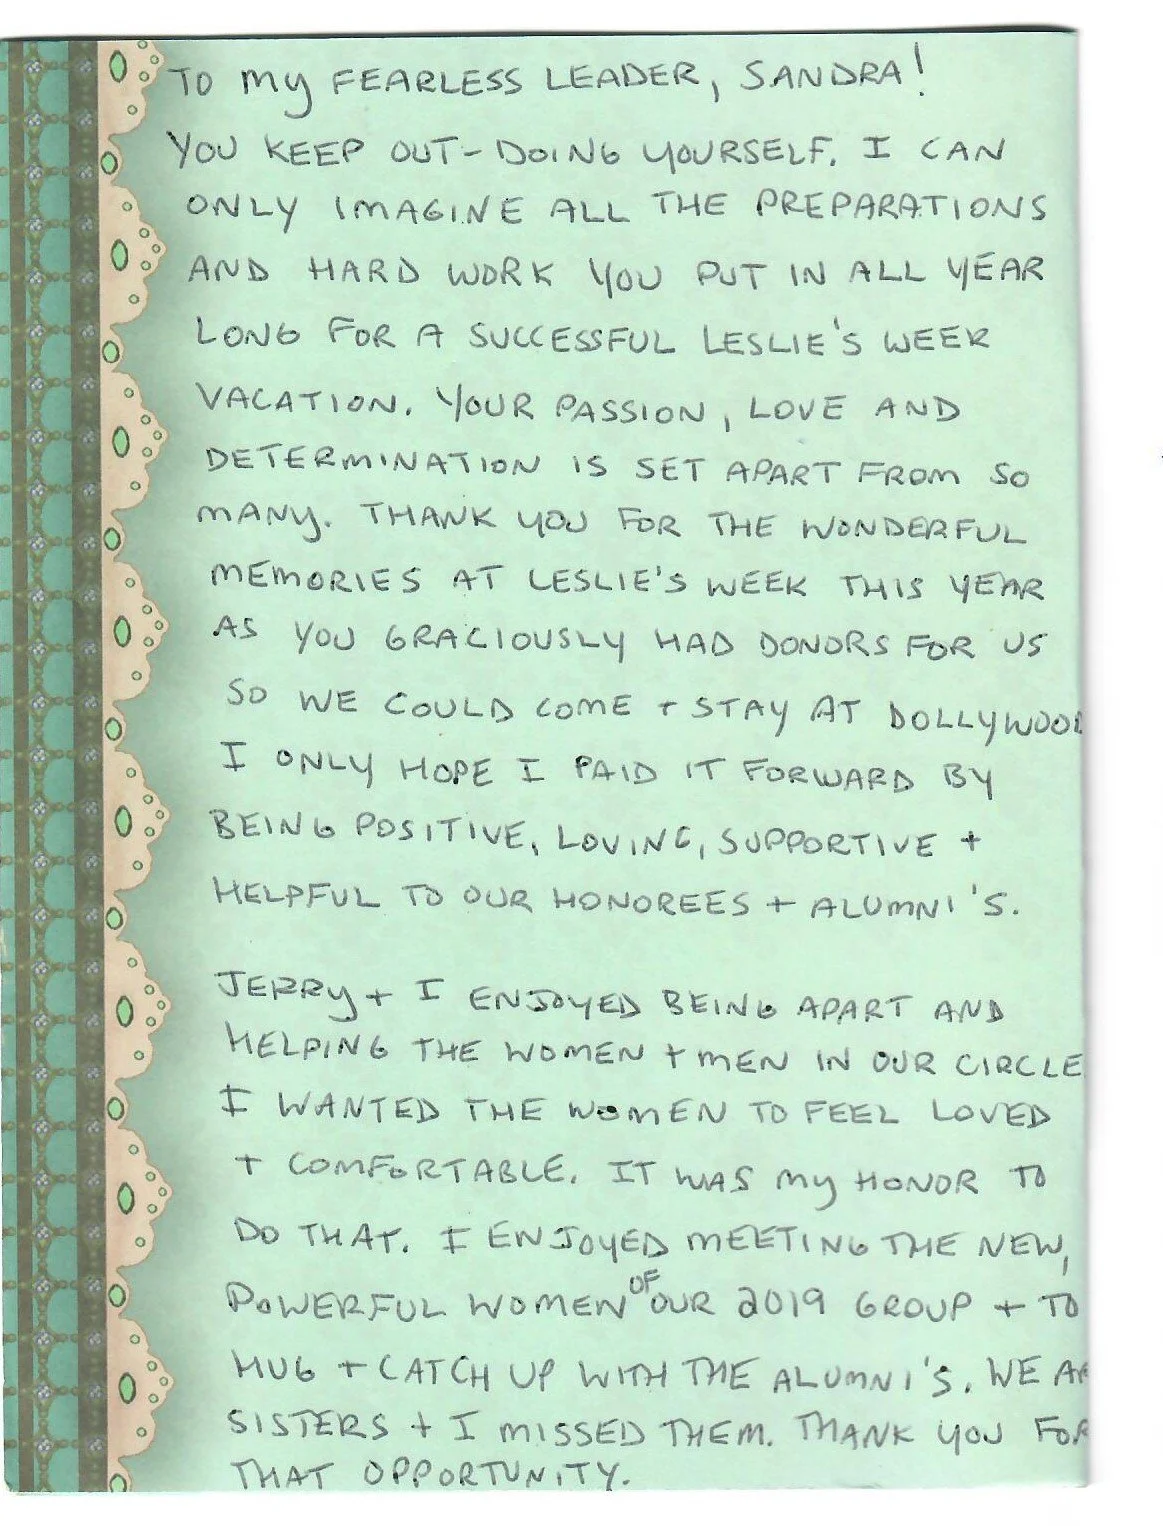 TO my FEARLESS LEADER, SANDRA!
YOU KEEP OUT-DOING YOURSELF. I CAN
ONLY IMAGINE ALL THE PREPARATIONS
AND HARD WORK YOU PUT IN ALL YEAR
LONG FOR A SUCCESSFUL LESLIE'S WEEK
VACATION. YOUR PASSION, LOVE AND
DETERMINATION IS SET APART FROM SO
MANY. THANK YOU FOR THE WONDERFUL
MEMORIES AT LESLIE'S WEEK THIS YEAR
AS YOU GRACIOUSLY HAD DONORS FOR US
SO WE COULD COME + STAY AT DOLLYWOOD
I ONLY HOPE I PAID IT FORWARD BY
BEING POSITIVE, LOVING, SUPPORTIVE +
HELPFUL TO OUR HONOREES + ALUMNI'S.
JERRY + I ENJOYED BEING APART AND
HELPING THE WOMEN + MEN IN OUR CIRCLE
I WANTED THE WOMEN TO FEEL LOVED
+ COMFORTABLE. IT WAS my HONOR TO
DO THAT. I ENJOYED MEETING THE NEW,
POWERFUL WOMEN OF OUR 2019 GROUP + TO
HUG + CATCH UP WITH THE ALUMNI'S. WE AR
SISTERS + I MISSED THEM. THANK YOU FOR
THAT OPPORTUNITY.